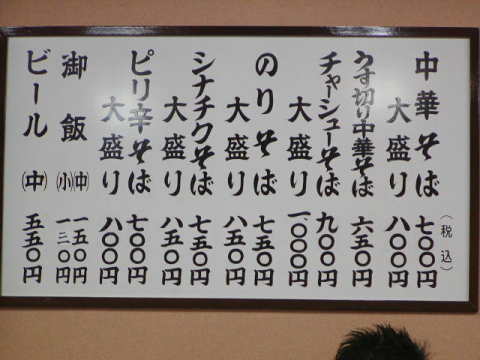 (税込)
中華そば 七〇〇円
大盛り 八〇〇円
うす切り中華そば 六五〇円
チャーシューそば 九〇〇円
大盛り 一、〇〇〇円
のりそば 七五〇円
大盛り 八五〇円
シナチクそば 七五〇円
大盛り 八五〇円
ピリ辛そば 七〇〇円
大盛り 八〇〇円
御飯 (中) 一五〇円
(小) 一三〇円
ビール (中) 五五〇円